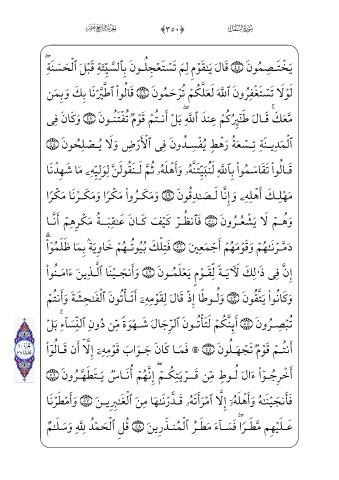 سورة النمل
﴿٣٥٠﴾
الجزء التاسع عشر
يَخْتَصِمُونَ قَالَ يَٰقَوْمِ لِمَ تَسْتَعْجِلُونَ بِٱلسَّيِّئَةِ قَبْلَ ٱلْحَسَنَةِ
لَوْلَا تَسْتَغْفِرُونَ ٱللَّهَ لَعَلَّكُمْ تُرْحَمُونَ قَالُوا۟ ٱطَّيَّرْنَا بِكَ وَبِمَن
مَّعَكَ قَالَ طَٰٓئِرُكُمْ عِندَ ٱللَّهِ بَلْ أَنتُمْ قَوْمٌ تُفْتَنُونَ وَكَانَ فِى
ٱلْمَدِينَةِ تِسْعَةُ رَهْطٍ يُفْسِدُونَ فِى ٱلْأَرْضِ وَلَا يُصْلِحُونَ
قَالُوا۟ تَقَاسَمُوا۟ بِٱللَّهِ لَنُبَيِّتَنَّهُۥ وَأَهْلَهُۥ ثُمَّ لَنَقُولَنَّ لِوَلِيِّهِۦ مَا شَهِدْنَا
مَهْلِكَ أَهْلِهِۦ وَإِنَّا لَصَٰدِقُونَ وَمَكَرُوا۟ مَكْرًا وَمَكَرْنَا مَكْرًا
وَهُمْ لَا يَشْعُرُونَ فَٱنظُرْ كَيْفَ كَانَ عَٰقِبَةُ مَكْرِهِمْ أَنَّا
دَمَّرْنَٰهُمْ وَقَوْمَهُمْ أَجْمَعِينَ فَتِلْكَ بُيُوتُهُمْ خَاوِيَةًۢ بِمَا ظَلَمُوٓا۟
إِنَّ فِى ذَٰلِكَ لَءَايَةً لِّقَوْمٍ يَعْلَمُونَ وَأَنجَيْنَا ٱلَّذِينَ ءَامَنُوا۟
وَكَانُوا۟ يَتَّقُونَ وَلُوطًا إِذْ قَالَ لِقَوْمِهِۦٓ أَتَأْتُونَ ٱلْفَٰحِشَةَ وَأَنتُمْ
تُبْصِرُونَ أَئِنَّكُمْ لَتَأْتُونَ ٱلرِّجَالَ شَهْوَةً مِّن دُونِ ٱلنِّسَآءِ بَلْ
أَنتُمْ قَوْمٌ تَجْهَلُونَ ۞ فَمَا كَانَ جَوَابَ قَوْمِهِۦٓ إِلَّآ أَن قَالُوٓا۟
أَخْرِجُوٓا۟ ءَالَ لُوطٍ مِّن قَرْيَتِكُمْ إِنَّهُمْ أُنَاسٌ يَتَطَهَّرُونَ
فَأَنجَيْنَٰهُ وَأَهْلَهُۥٓ إِلَّا ٱمْرَأَتَهُۥ قَدَّرْنَٰهَا مِنَ ٱلْغَٰبِرِينَ وَأَمْطَرْنَا
عَلَيْهِم مَّطَرًا فَسَآءَ مَطَرُ ٱلْمُنذَرِينَ قُلِ ٱلْحَمْدُ لِلَّهِ وَسَلَٰمٌ